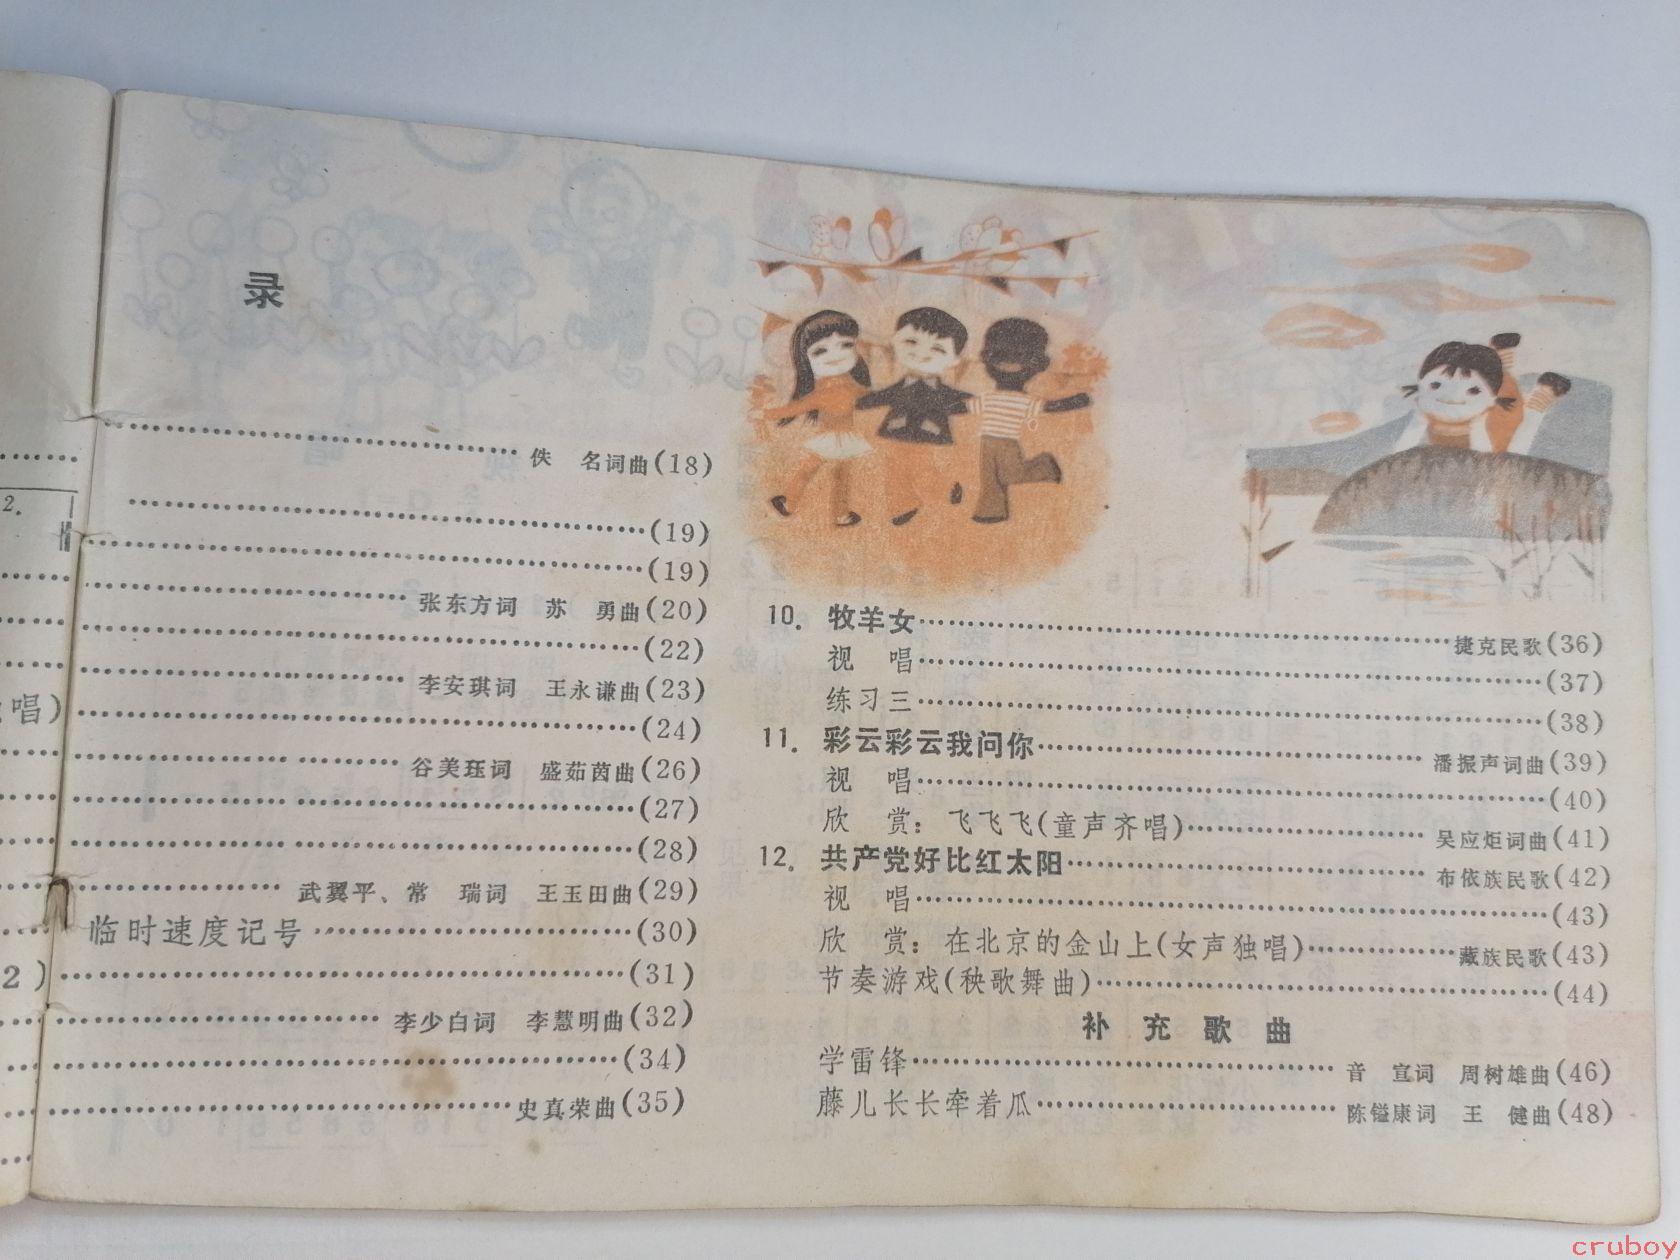 录
2.
唱)
2)
………… 佚　名词曲(18)
…………(19)
…………(19)
………… 张东方词　苏　勇曲(20)
…………(22)
………… 李安琪词　王永谦曲(23)
…………(24)
………… 谷美珏词　盛茹茵曲(26)
…………(27)
…………(28)
………… 武翼平、常　瑞词　王玉田曲(29)
临时速度记号…………(30)
…………(31)
………… 李少白词　李慧明曲(32)
…………(34)
…………史真荣曲(35)
10. 牧羊女…………捷克民歌(36)
视　唱…………(37)
练习三…………(38)
11. 彩云彩云我问你…………潘振声词曲(39)
视　唱…………(40)
欣　赏：飞飞飞(童声齐唱)…………吴应炬词曲(41)
12. 共产党好比红太阳…………布依族民歌(42)
视　唱…………(43)
欣　赏：在北京的金山上(女声独唱)…………藏族民歌(43)
节奏游戏(秧歌舞曲)…………(44)
补充歌曲
学雷锋…………音　宣词　周树雄曲(46)
藤儿长长牵着瓜…………陈镒康词　王　健曲(48)
cruboy